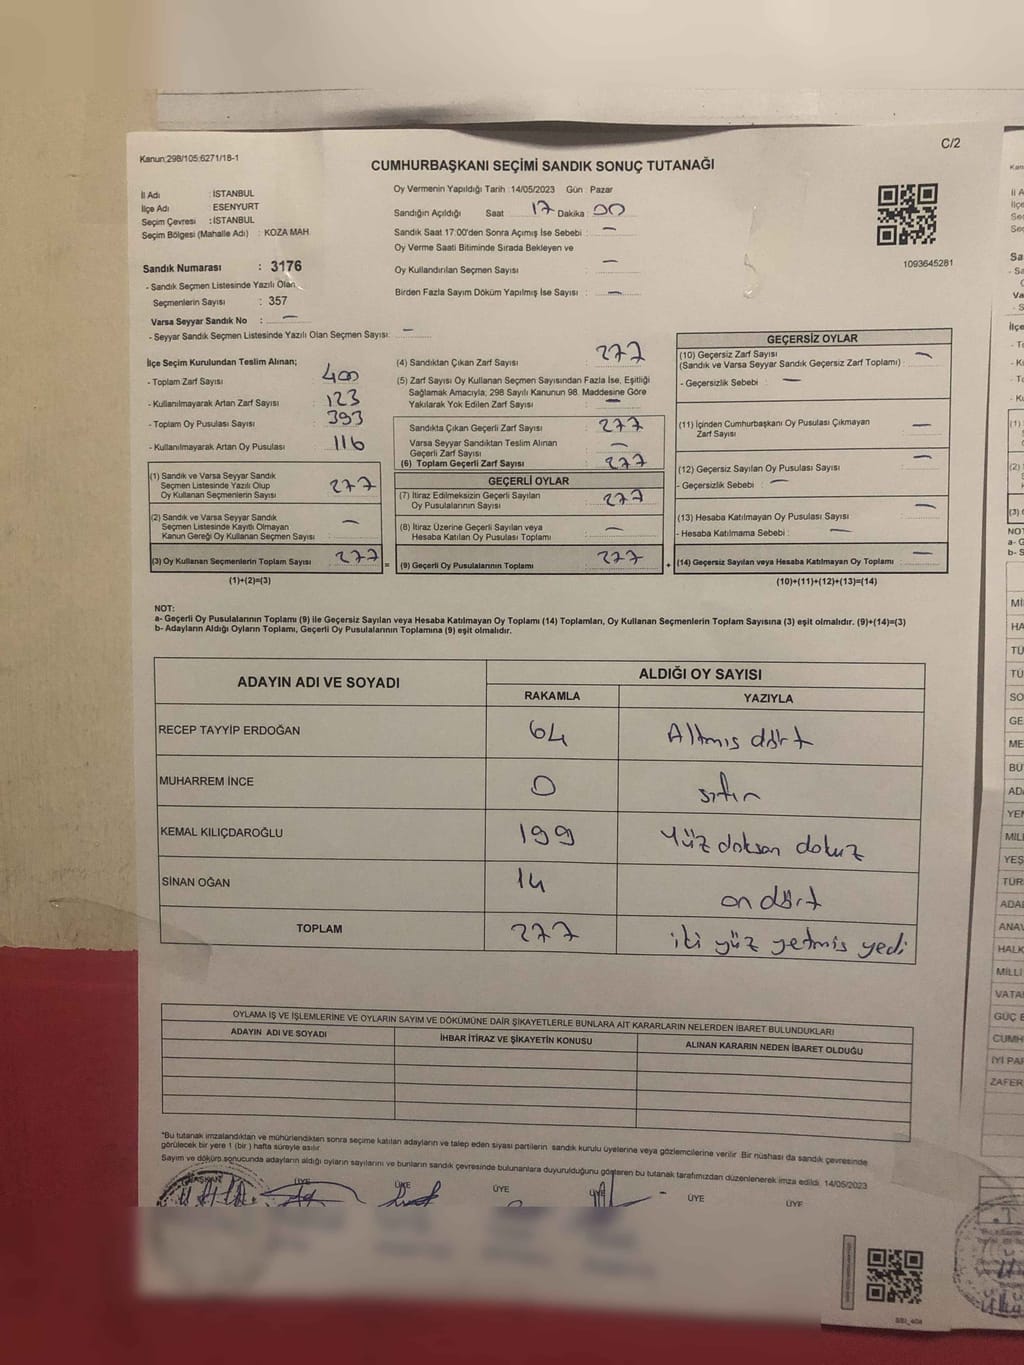 C/2
Kanun;298/105;6271/18-1
CUMHURBAŞKANI SEÇİMİ SANDIK SONUÇ TUTANAĞI
İl Adı : İSTANBUL
İlçe Adı : ESENYURT
Seçim Çevresi : İSTANBUL
Seçim Bölgesi (Mahalle Adı) : KOZA MAH.
Oy Vermenin Yapıldığı Tarih :14/05/2023 Gün : Pazar
Sandığın Açıldığı Saat 17 Dakika 00
Sandık Saat 17:00'den Sonra Açımış İse Sebebi : —
Oy Verme Saati Bitiminde Sırada Bekleyen ve
Oy Kullandırılan Seçmen Sayısı —
Birden Fazla Sayım Döküm Yapılmış İse Sayısı : —
1093645281
Sandık Numarası : 3176
- Sandık Seçmen Listesinde Yazılı Olan
Seçmenlerin Sayısı : 357
Varsa Seyyar Sandık No : —
- Seyyar Sandık Seçmen Listesinde Yazılı Olan Seçmen Sayısı: —
İlçe Seçim Kurulundan Teslim Alınan;
- Toplam Zarf Sayısı 400
- Kullanılmayarak Artan Zarf Sayısı 123
- Toplam Oy Pusulası Sayısı 393
- Kullanılmayarak Artan Oy Pusulası 116
(1) Sandık ve Varsa Seyyar Sandık
Seçmen Listesinde Yazılı Olup
Oy Kullanan Seçmenlerin Sayısı 277
(2) Sandık ve Varsa Seyyar Sandık
Seçmen Listesinde Kayıtlı Olmayan
Kanun Gereği Oy Kullanan Seçmen Sayısı —
(3) Oy Kullanan Seçmenlerin Toplam Sayısı 277 =
(1)+(2)=(3)
(4) Sandıktan Çıkan Zarf Sayısı 277
(5) Zarf Sayısı Oy Kullanan Seçmen Sayısından Fazla İse, Eşitliği
Sağlamak Amacıyla; 298 Sayılı Kanunun 98. Maddesine Göre
Yakılarak Yok Edilen Zarf Sayısı —
Sandıkta Çıkan Geçerli Zarf Sayısı 277
Varsa Seyyar Sandıktan Teslim Alınan
Geçerli Zarf Sayısı —
(6) Toplam Geçerli Zarf Sayısı 277
GEÇERLİ OYLAR
(7) İtiraz Edilmeksizin Geçerli Sayılan
Oy Pusulalarının Sayısı 277
(8) İtiraz Üzerine Geçerli Sayılan veya
Hesaba Katılan Oy Pusulası Toplamı —
(9) Geçerli Oy Pusulalarının Toplamı 277 +
GEÇERSİZ OYLAR
(10) Geçersiz Zarf Sayısı
(Sandık ve Varsa Seyyar Sandık Geçersiz Zarf Toplamı) : —
- Geçersizlik Sebebi : —
(11) İçinden Cumhurbaşkanı Oy Pusulası Çıkmayan
Zarf Sayısı —
(12) Geçersiz Sayılan Oy Pusulası Sayısı —
- Geçersizlik Sebebi : —
(13) Hesaba Katılmayan Oy Pusulası Sayısı —
- Hesaba Katılmama Sebebi : —
(14) Geçersiz Sayılan veya Hesaba Katılmayan Oy Toplamı —
(10)+(11)+(12)+(13)=(14)
NOT:
a- Geçerli Oy Pusulalarının Toplamı (9) ile Geçersiz Sayılan veya Hesaba Katılmayan Oy Toplamı (14) Toplamları, Oy Kullanan Seçmenlerin Toplam Sayısına (3) eşit olmalıdır. (9)+(14)=(3)
b- Adayların Aldığı Oyların Toplamı, Geçerli Oy Pusulalarının Toplamına (9) eşit olmalıdır.
ADAYIN ADI VE SOYADI
ALDIĞI OY SAYISI
RAKAMLA YAZIYLA
RECEP TAYYİP ERDOĞAN 64 Altmış dört
MUHARREM İNCE 0 sıfır
KEMAL KILIÇDAROĞLU 199 Yüz doksan dokuz
SİNAN OĞAN 14 on dört
TOPLAM 277 iki yüz yetmiş yedi
OYLAMA İŞ VE İŞLEMLERİNE VE OYLARIN SAYIM VE DÖKÜMÜNE DAİR ŞİKAYETLERLE BUNLARA AİT KARARLARIN NELERDEN İBARET BULUNDUKLARI
ADAYIN ADI VE SOYADI İHBAR İTİRAZ VE ŞİKAYETİN KONUSU ALINAN KARARIN NEDEN İBARET OLDUĞU
*Bu tutanak imzalandıktan ve mühürlendikten sonra seçime katılan adayların ve talep eden siyasi partilerin sandık kurulu üyelerine veya gözlemcilerine verilir. Bir nüshası da sandık çevresinde
görülecek bir yere 1 (bir) hafta süreyle asılır.
Sayım ve döküm sonucunda adayların aldığı oyların sayılarını ve bunların sandık çevresinde bulunanlara duyurulduğunu gösteren bu tutanak tarafımızdan düzenlenerek imza edildi. 14/05/2023
BAŞKAN ÜYE ÜYE ÜYE ÜYE ÜYE ÜYE